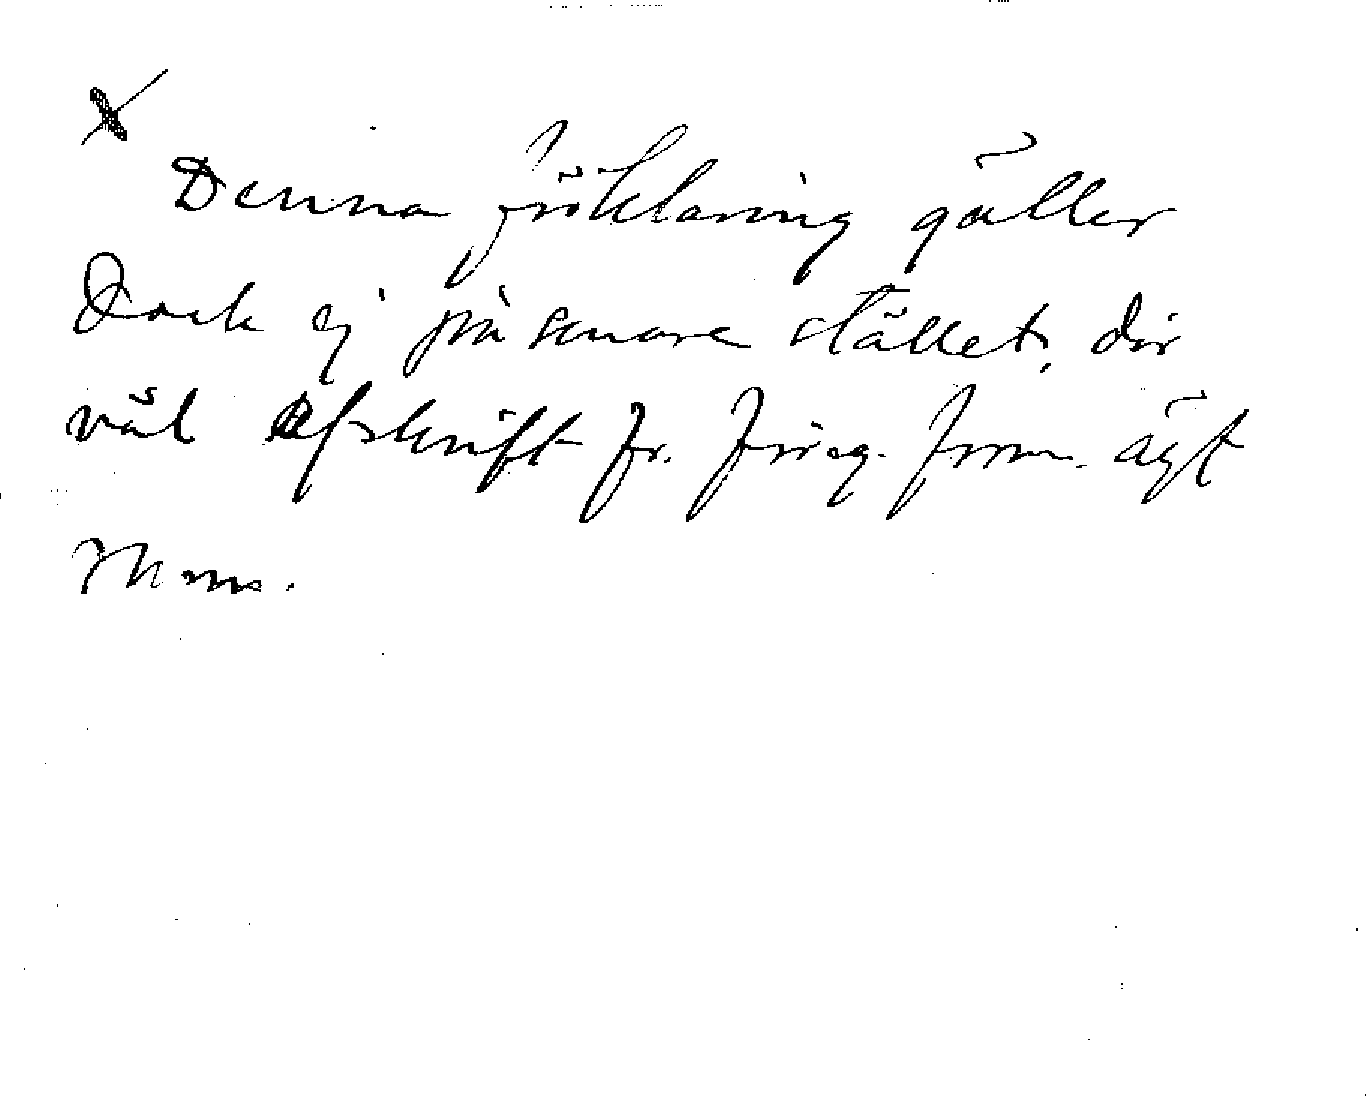 Denna förklaring gäller
dock ej på senare stället, där
väl afskrift fr. föreg. form. ägt
rum.